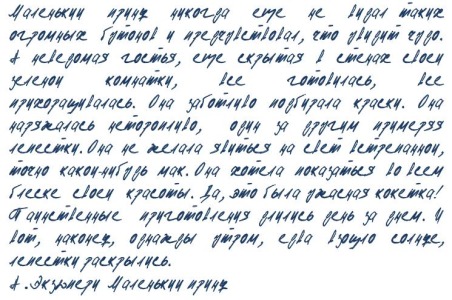 Маленький принц никогда еще не видал таких
огромных бутонов и предчувствовал, что увидит чудо.
А неведомая гостья, еще скрытая в стенах своей
зеленой комнатки, все готовилась, все
прихорашивалась. Она заботливо подбирала краски. Она
наряжалась неторопливо, один за другим примеряя
лепестки. Она не желала явиться на свет встрепанной,
точно какой-нибудь мак. Она хотела показаться во всем
блеске своей красоты. Да, это была ужасная кокетка!
Таинственные приготовления длились день за днем. И
вот, наконец, однажды утром, едва взошло солнце,
лепестки раскрылись.
А. Экзюпери Маленький принц